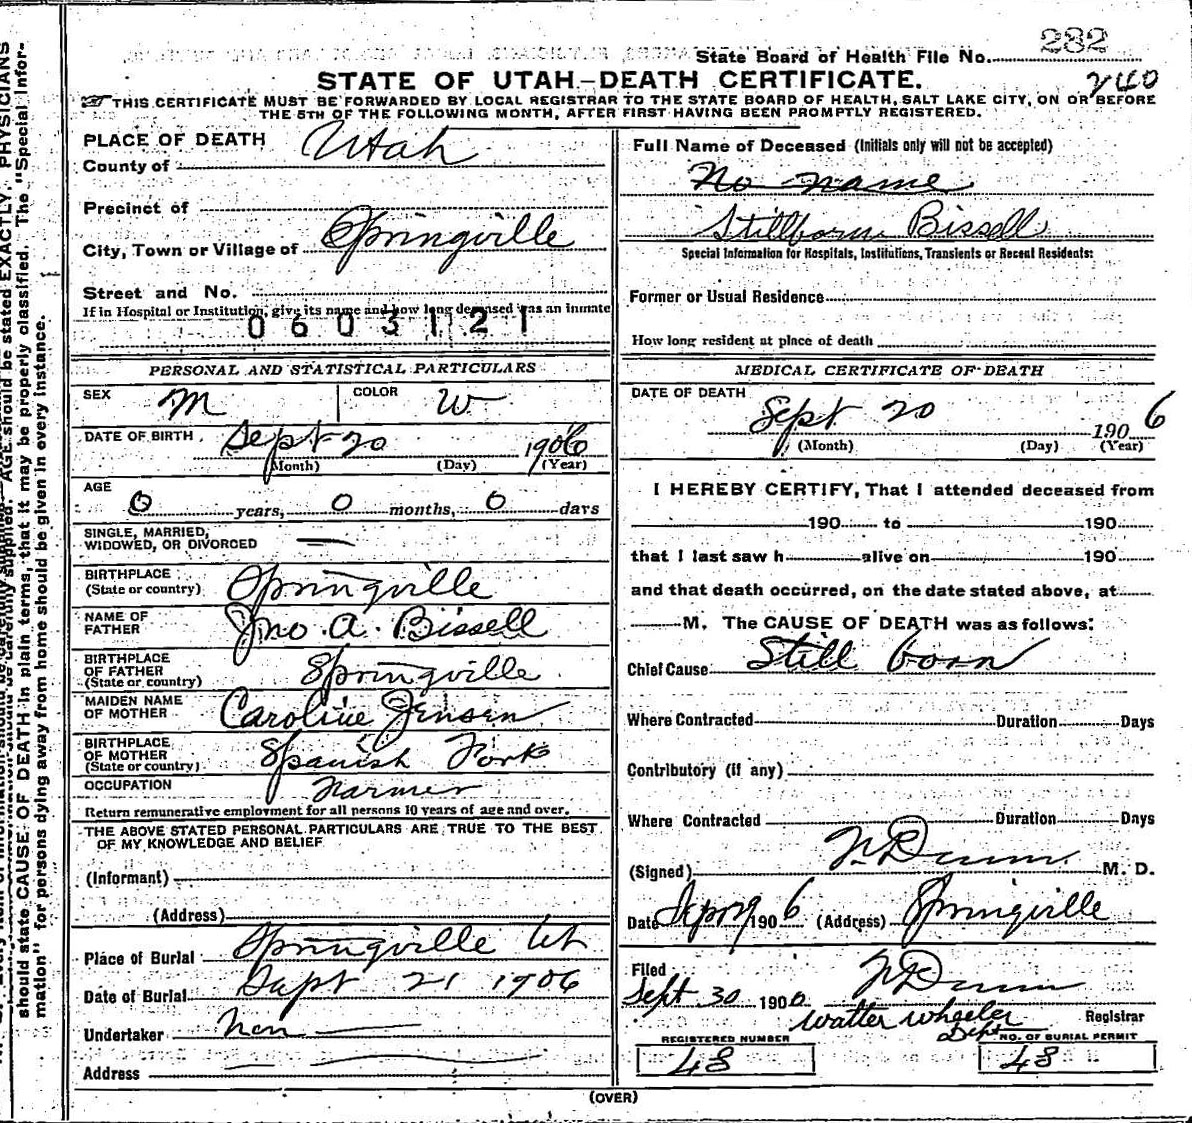 State Board of Health File No. 232
STATE OF UTAH—DEATH CERTIFICATE. 240
THIS CERTIFICATE MUST BE FORWARDED BY LOCAL REGISTRAR TO THE STATE BOARD OF HEALTH, SALT LAKE CITY, ON OR BEFORE
THE 5TH OF THE FOLLOWING MONTH, AFTER FIRST HAVING BEEN PROMPTLY REGISTERED.
PLACE OF DEATH
County of Utah
Precinct of
City, Town or Village of Springville
Street and No.
If in Hospital or Institution, give its name and how long deceased was an inmate
0603121
PERSONAL AND STATISTICAL PARTICULARS
SEX M COLOR W
DATE OF BIRTH Sept 20 1906
(Month) (Day) (Year)
AGE
0 years, 0 months, 0 days
SINGLE, MARRIED,
WIDOWED, OR DIVORCED —
BIRTHPLACE
(State or country) Springville
NAME OF
FATHER Jno. A. Bissell
BIRTHPLACE
OF FATHER
(State or country) Springville
MAIDEN NAME
OF MOTHER Caroline Jensen
BIRTHPLACE
OF MOTHER
(State or country) Spanish Fork
OCCUPATION Farmer
Return remunerative employment for all persons 10 years of age and over.
THE ABOVE STATED PERSONAL PARTICULARS ARE TRUE TO THE BEST
OF MY KNOWLEDGE AND BELIEF
(Informant)
(Address)
Place of Burial Springville Ut
Date of Burial Sept 21 1906
Undertaker Non —
Address
Full Name of Deceased (Initials only will not be accepted)
No name
Stillborn Bissell
Special Information for Hospitals, Institutions, Transients or Recent Residents:
Former or Usual Residence
How long resident at place of death
MEDICAL CERTIFICATE OF DEATH
DATE OF DEATH
Sept 20 1906
(Month) (Day) (Year)
I HEREBY CERTIFY, That I attended deceased from
190 to 190
that I last saw h alive on 190
and that death occurred, on the date stated above, at
M. The CAUSE OF DEATH was as follows:
Chief Cause Still born
Where Contracted Duration Days
Contributory (if any)
Where Contracted Duration Days
(Signed) Dunn M. D.
Date 1906 (Address) Springville
Filed
Sept 30 1906 Dunn
Walter Wheeler Registrar
Dept
REGISTERED NUMBER NO. OF BURIAL PERMIT
48 48
(OVER)
AGE should be stated EXACTLY. PHYSICIANS
should state CAUSE OF DEATH in plain terms, that it may be properly classified. The "Special Infor-
mation" for persons dying away from home should be given in every instance.